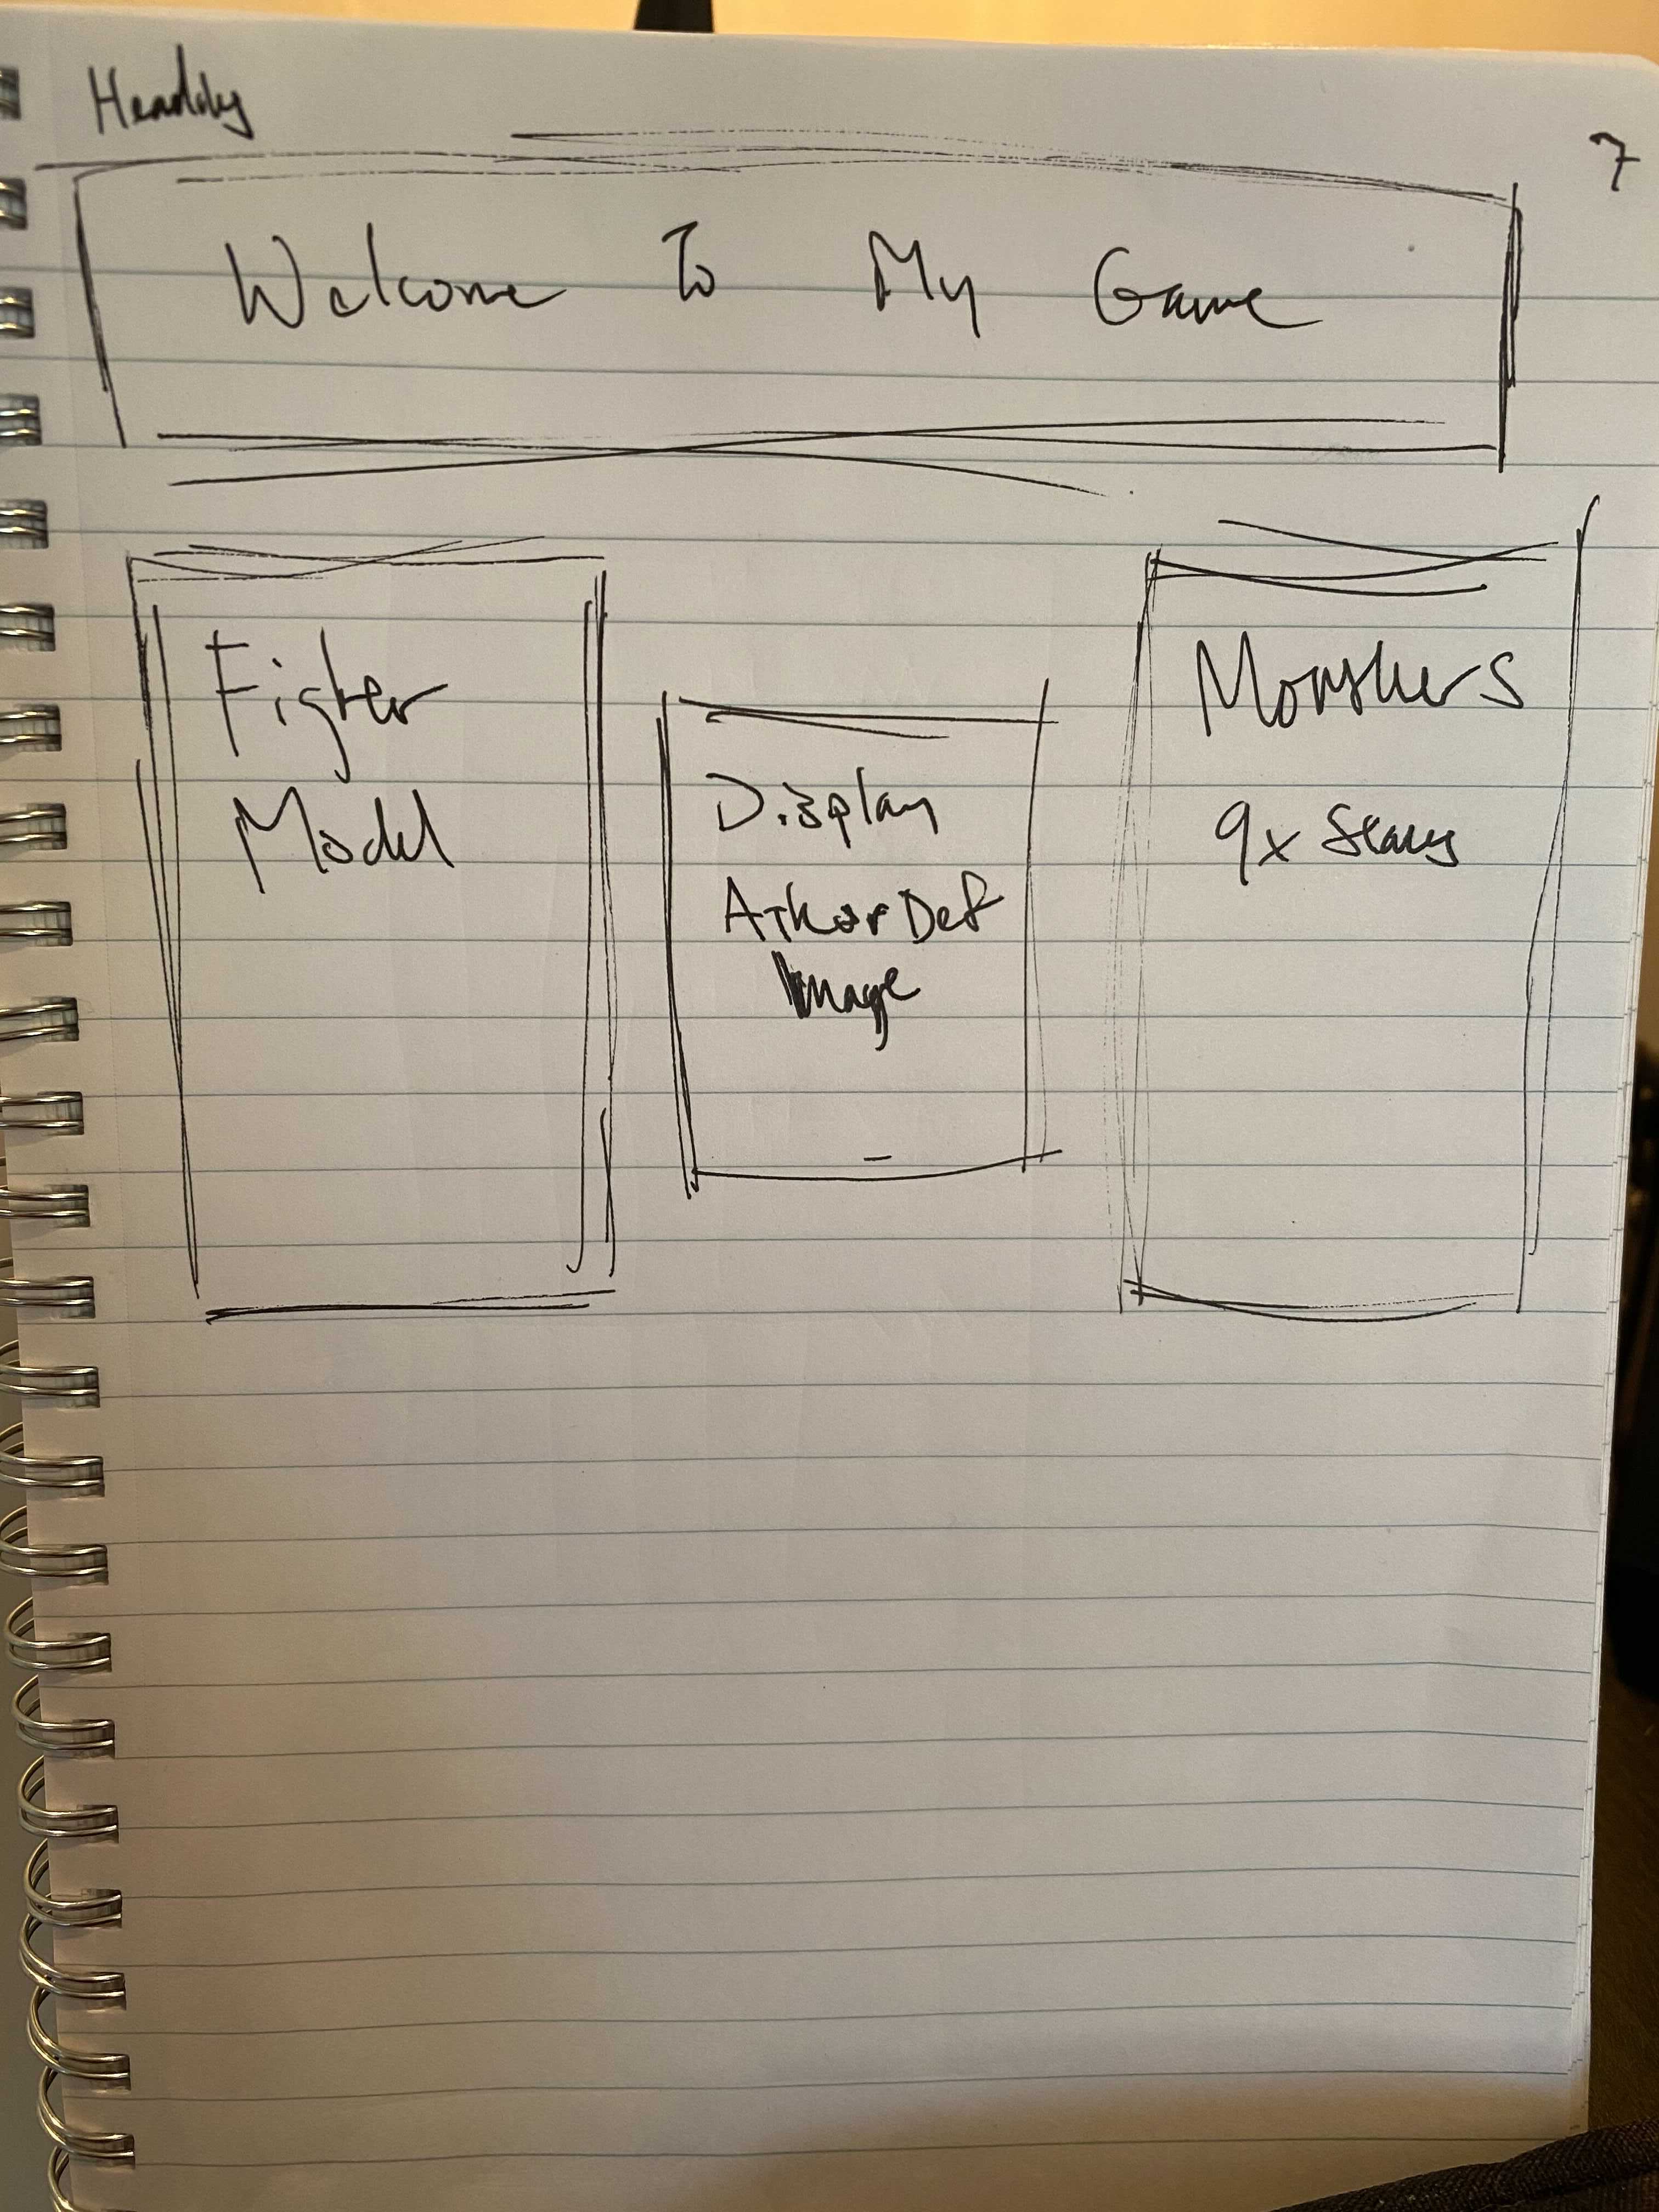 7
Welcome To My Game
Figter
Model
Display
Atk or Def
Image
Monsters
9x